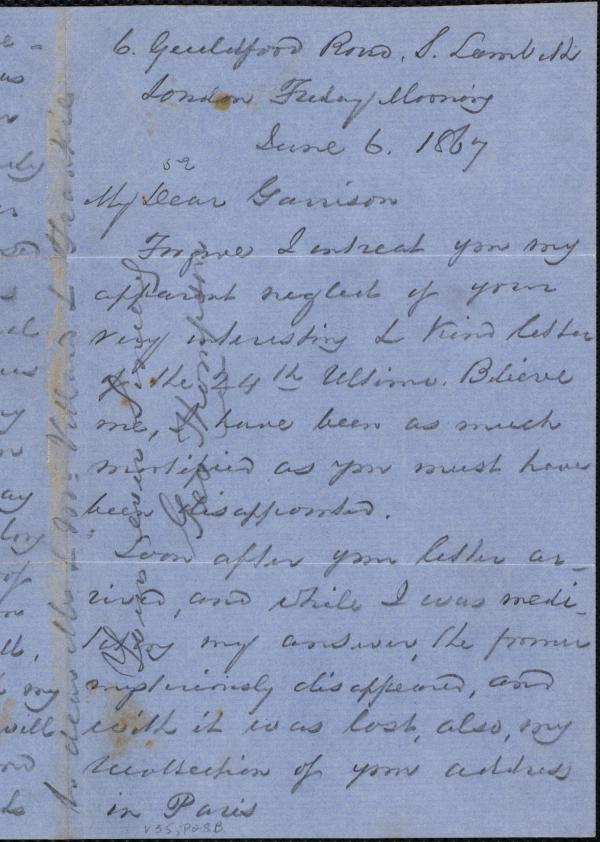 6. Guildford Road, S. Lambeth
London Friday Morning
June 6. 1867
52
My Dear Garrison
Forgive I intreat you my
apparent neglect of your
very interesting & kind letter
of the 24th Ultimo. Believe
me, I have been as much
mortified as you must have
been disappointed.
Soon after your letter ar-
rived, and while I was medi-
tating my answer, the former
mysteriously disappeared, and
with it was lost, also, my
recollection of your address
in Paris
V35, P28B
Yours ever
Geo Thompson
to dear Mr & Mrs Villard & Frankie